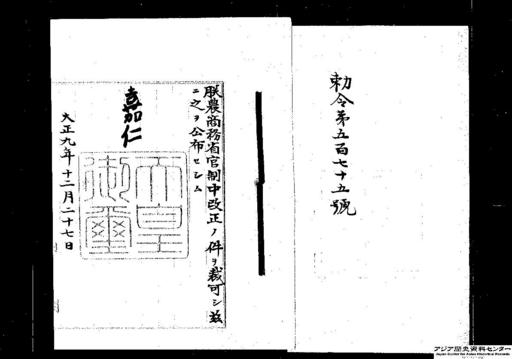 勅令第五百七十五號
朕農商務省官制中改正ノ件ヲ裁可シ茲
ニ之ヲ公布セシム
嘉仁
天皇御璽
大正九年十二月二十七日
アジア歴史資料センター
Japan Center for Asian Historical Records